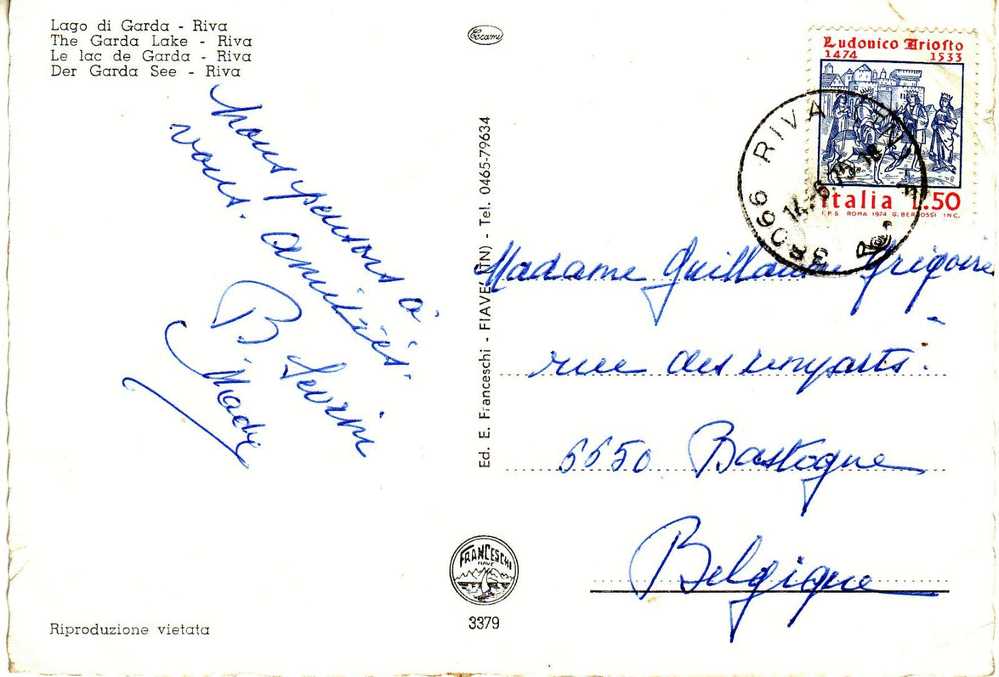 Lago di Garda - Riva
The Garda Lake - Riva
Le lac de Garda - Riva
Der Garda See - Riva
Nous pensons à
vous. Amitiés.
B
Mady
Ed. E. Franceschi - FIAVE' (TN) - Tel. 0465-79634
Ludovico Ariosto
1474 1533
Italia L.50
I.P.S. ROMA 1974 INC.
38066 RIVA
14-6-75-18
Madame Guillaume Grégoire
rue des remparts.
6650 Bastogne
Belgique
FRANCESCHI
FIAVE
3379
Riproduzione vietata